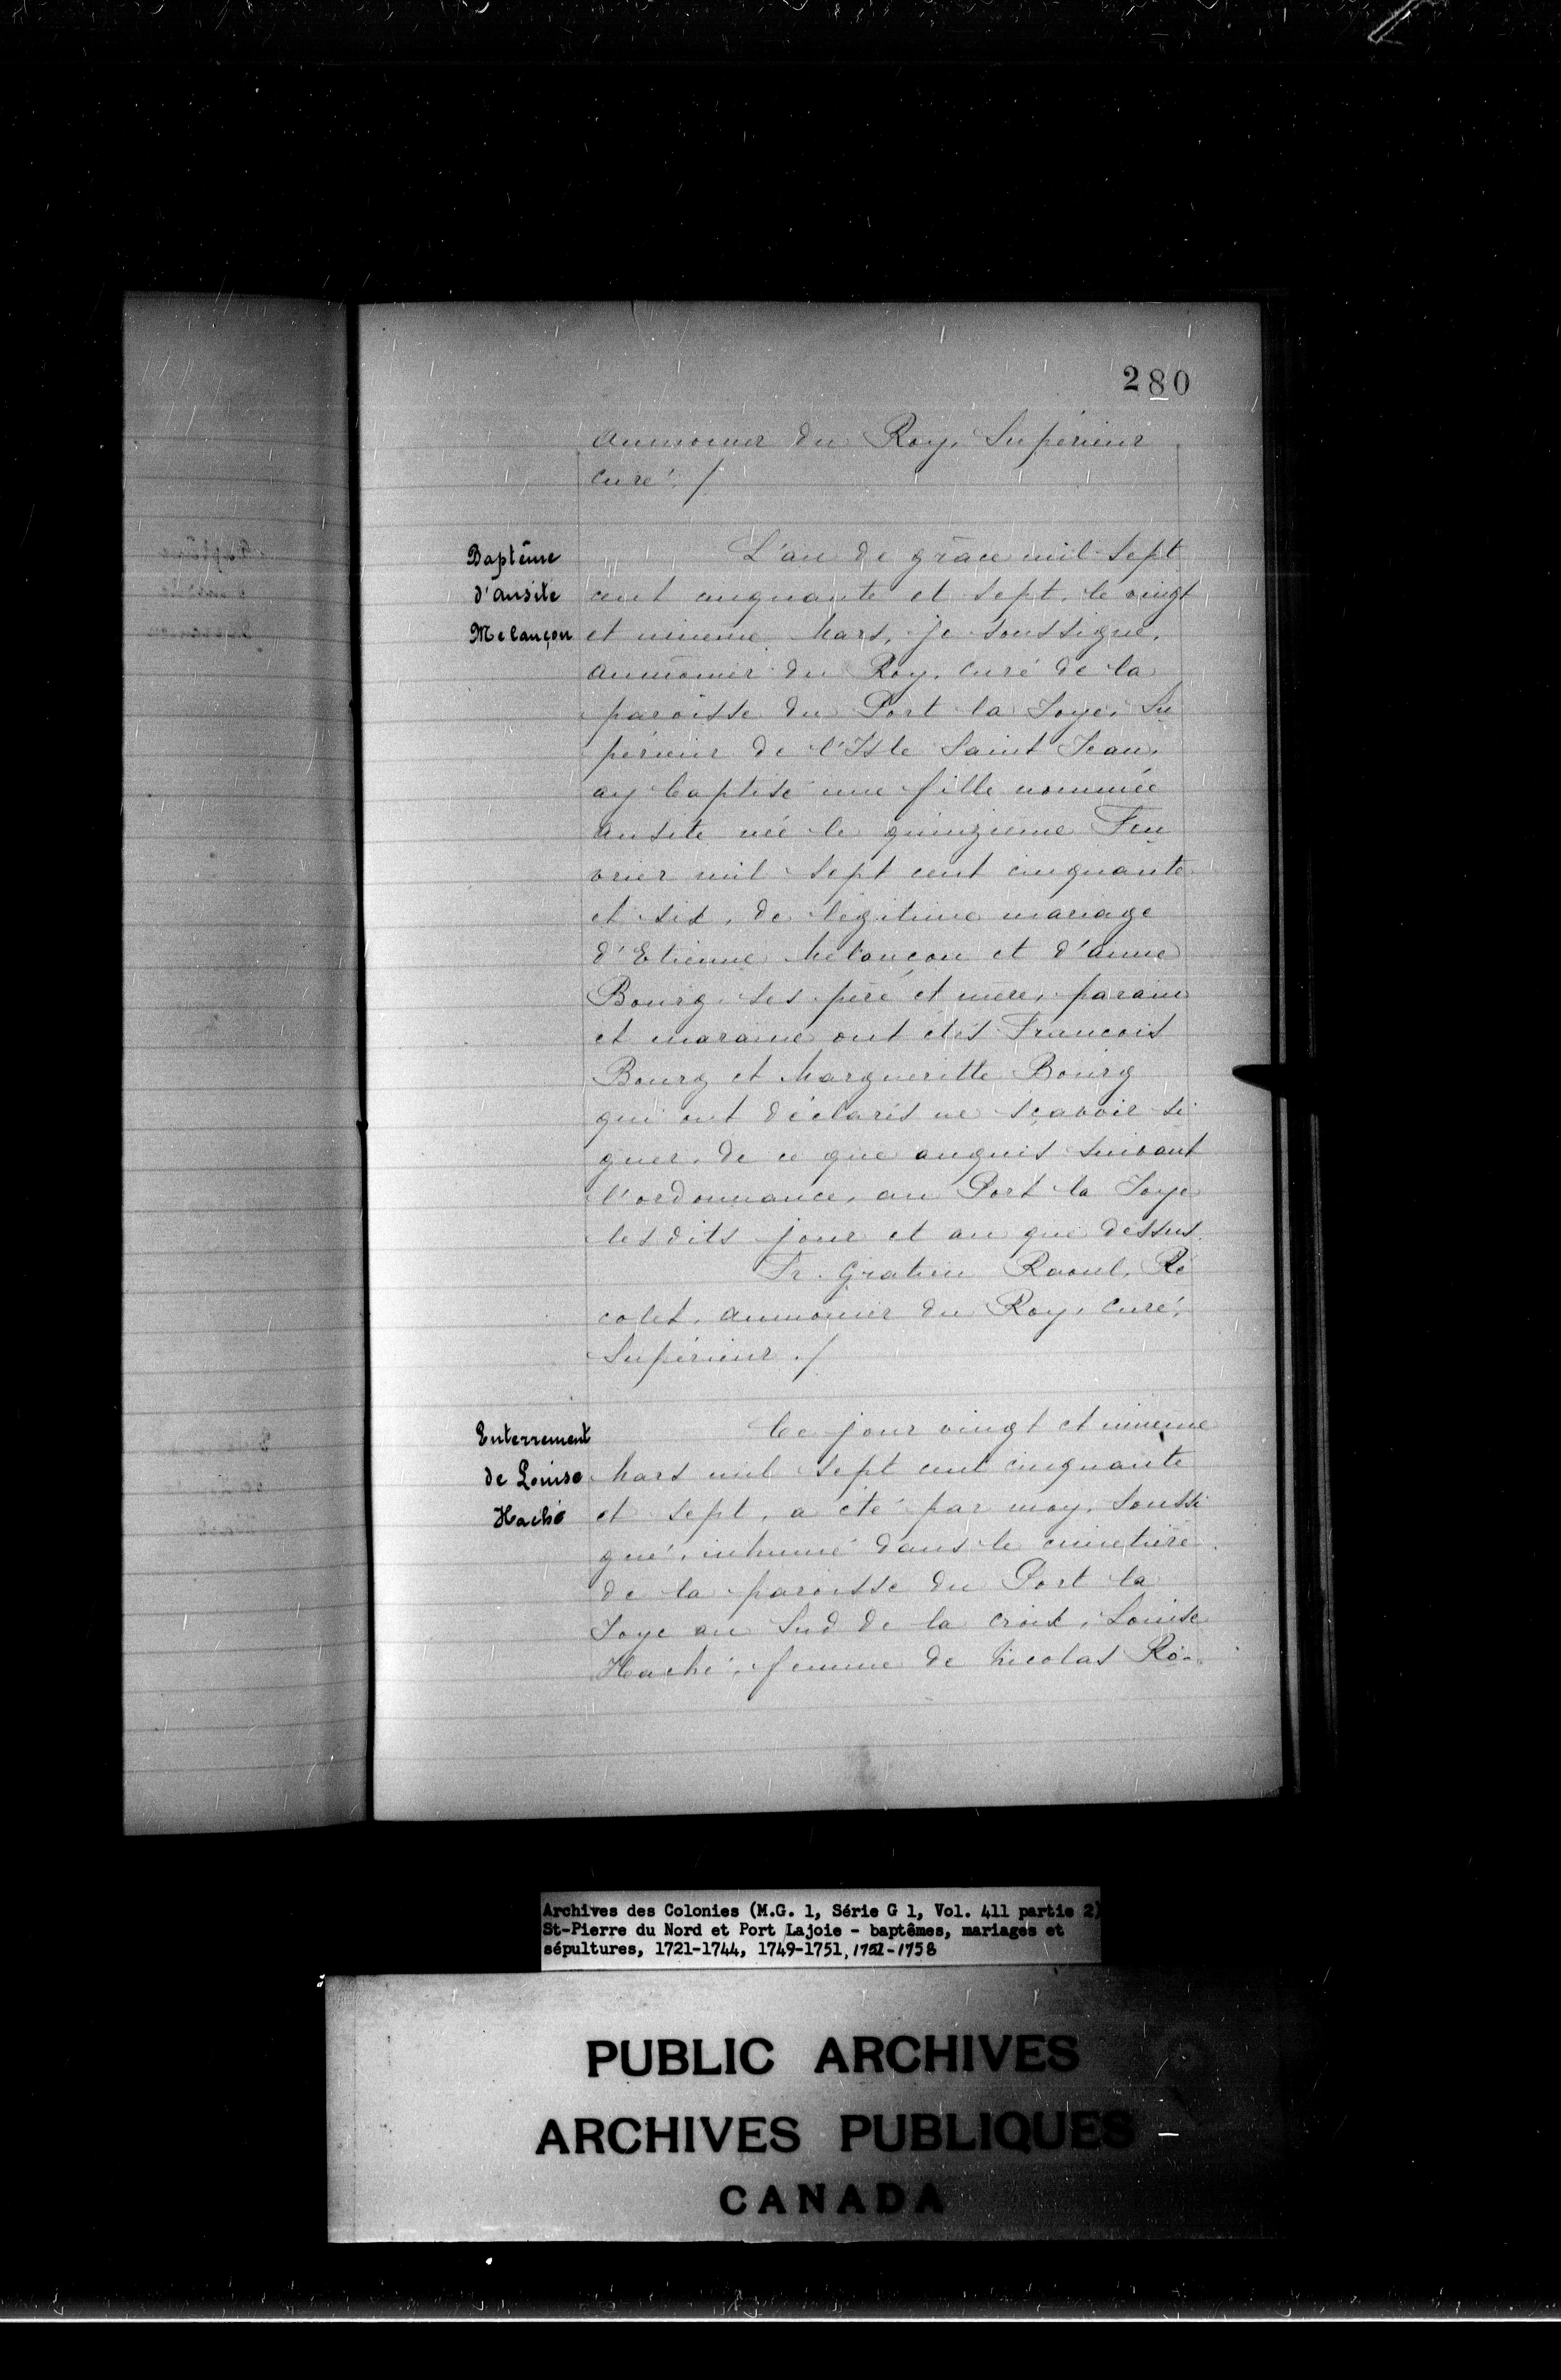 280
aumonier du Roy, Supérieur
curé. /
Baptême
d'ansite
Melançon
L'an de grâce mil sept
cent cinquante et sept, le vingt
et unieme Mars, je soussigné,
aumônier du Roy, curé de la
paroisse du Port la Joye, Su
périeur de l'Isle Saint Jean,
ay baptisé une fille nommée
ansite née le quinzieme Feu
vrier mil sept cent cinquante
et six, de légitime mariage
d'Etienne Melançon et d'anne
Bourg ses père et mere, parain
et maraine ont étés Francois
Bourg et Margueritte Bourg
qui ont déclarés ne sçavoir si
gner, de ce que anquis suivant
l'ordonnance, au Port la Joye
les dits jour et an que dessus.
Fr. Gratien Raoul, Ré
colet, aumonier du Roy, curé,
Supérieur ./
Enterrement
de Louise
Haché
Ce jour vingt et unieme
Mars mil sept cent cinquante
et sept, a été par moy, soussi
gné, inhumé dans le cimetière
de la paroisse du Port la
Joye au Sud de la croix, Louise
Haché, femme de Nicolas Ro-
Archives des Colonies (M.G. 1, Série G 1, Vol. 411 partie 2)
St-Pierre du Nord et Port Lajoie - baptêmes, mariages et
sépultures, 1721-1744, 1749-1751, 1751-1758
PUBLIC ARCHIVES
ARCHIVES PUBLIQUES
CANADA